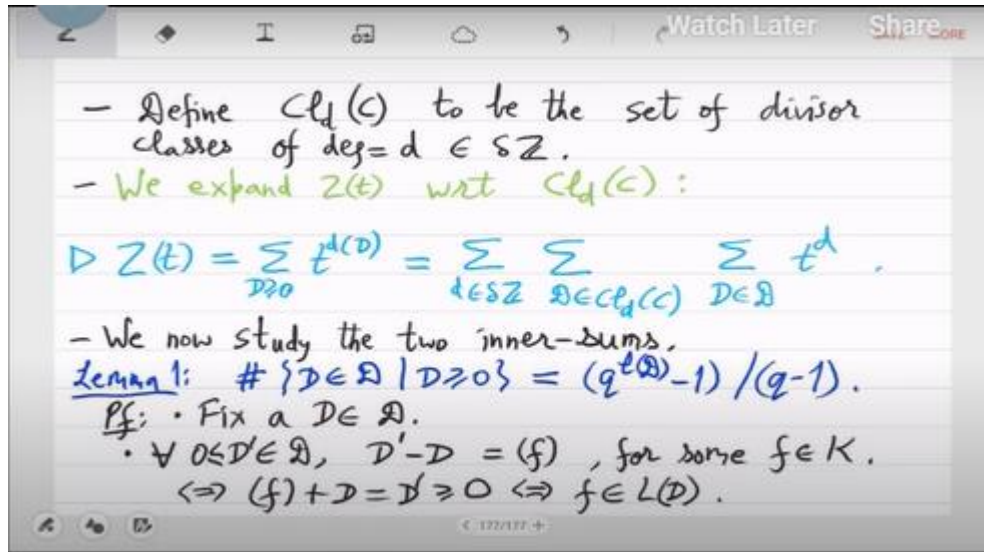 Watch Later Share MORE
– Define Cl_d(C) to be the set of divisor
classes of deg= d ∈ δℤ.
– We expand Z(t) wrt Cl_d(C) :
▷ Z(t) = Σ_{D≥0} t^{d(D)} = Σ_{d∈δℤ} Σ_{𝒟∈Cl_d(C)} Σ_{D∈𝒟} t^d .
– We now study the two inner-sums.
Lemma 1: # {D∈𝒟 | D≥0} = (q^{l(𝒟)}-1)/(q-1).
Pf: · Fix a D∈ 𝒟.
· ∀ 0≤D'∈𝒟, D'-D = (f) , for some f∈K.
⟺ (f)+D = D' ≥ 0 ⟺ f∈L(D).
< 177/177 +